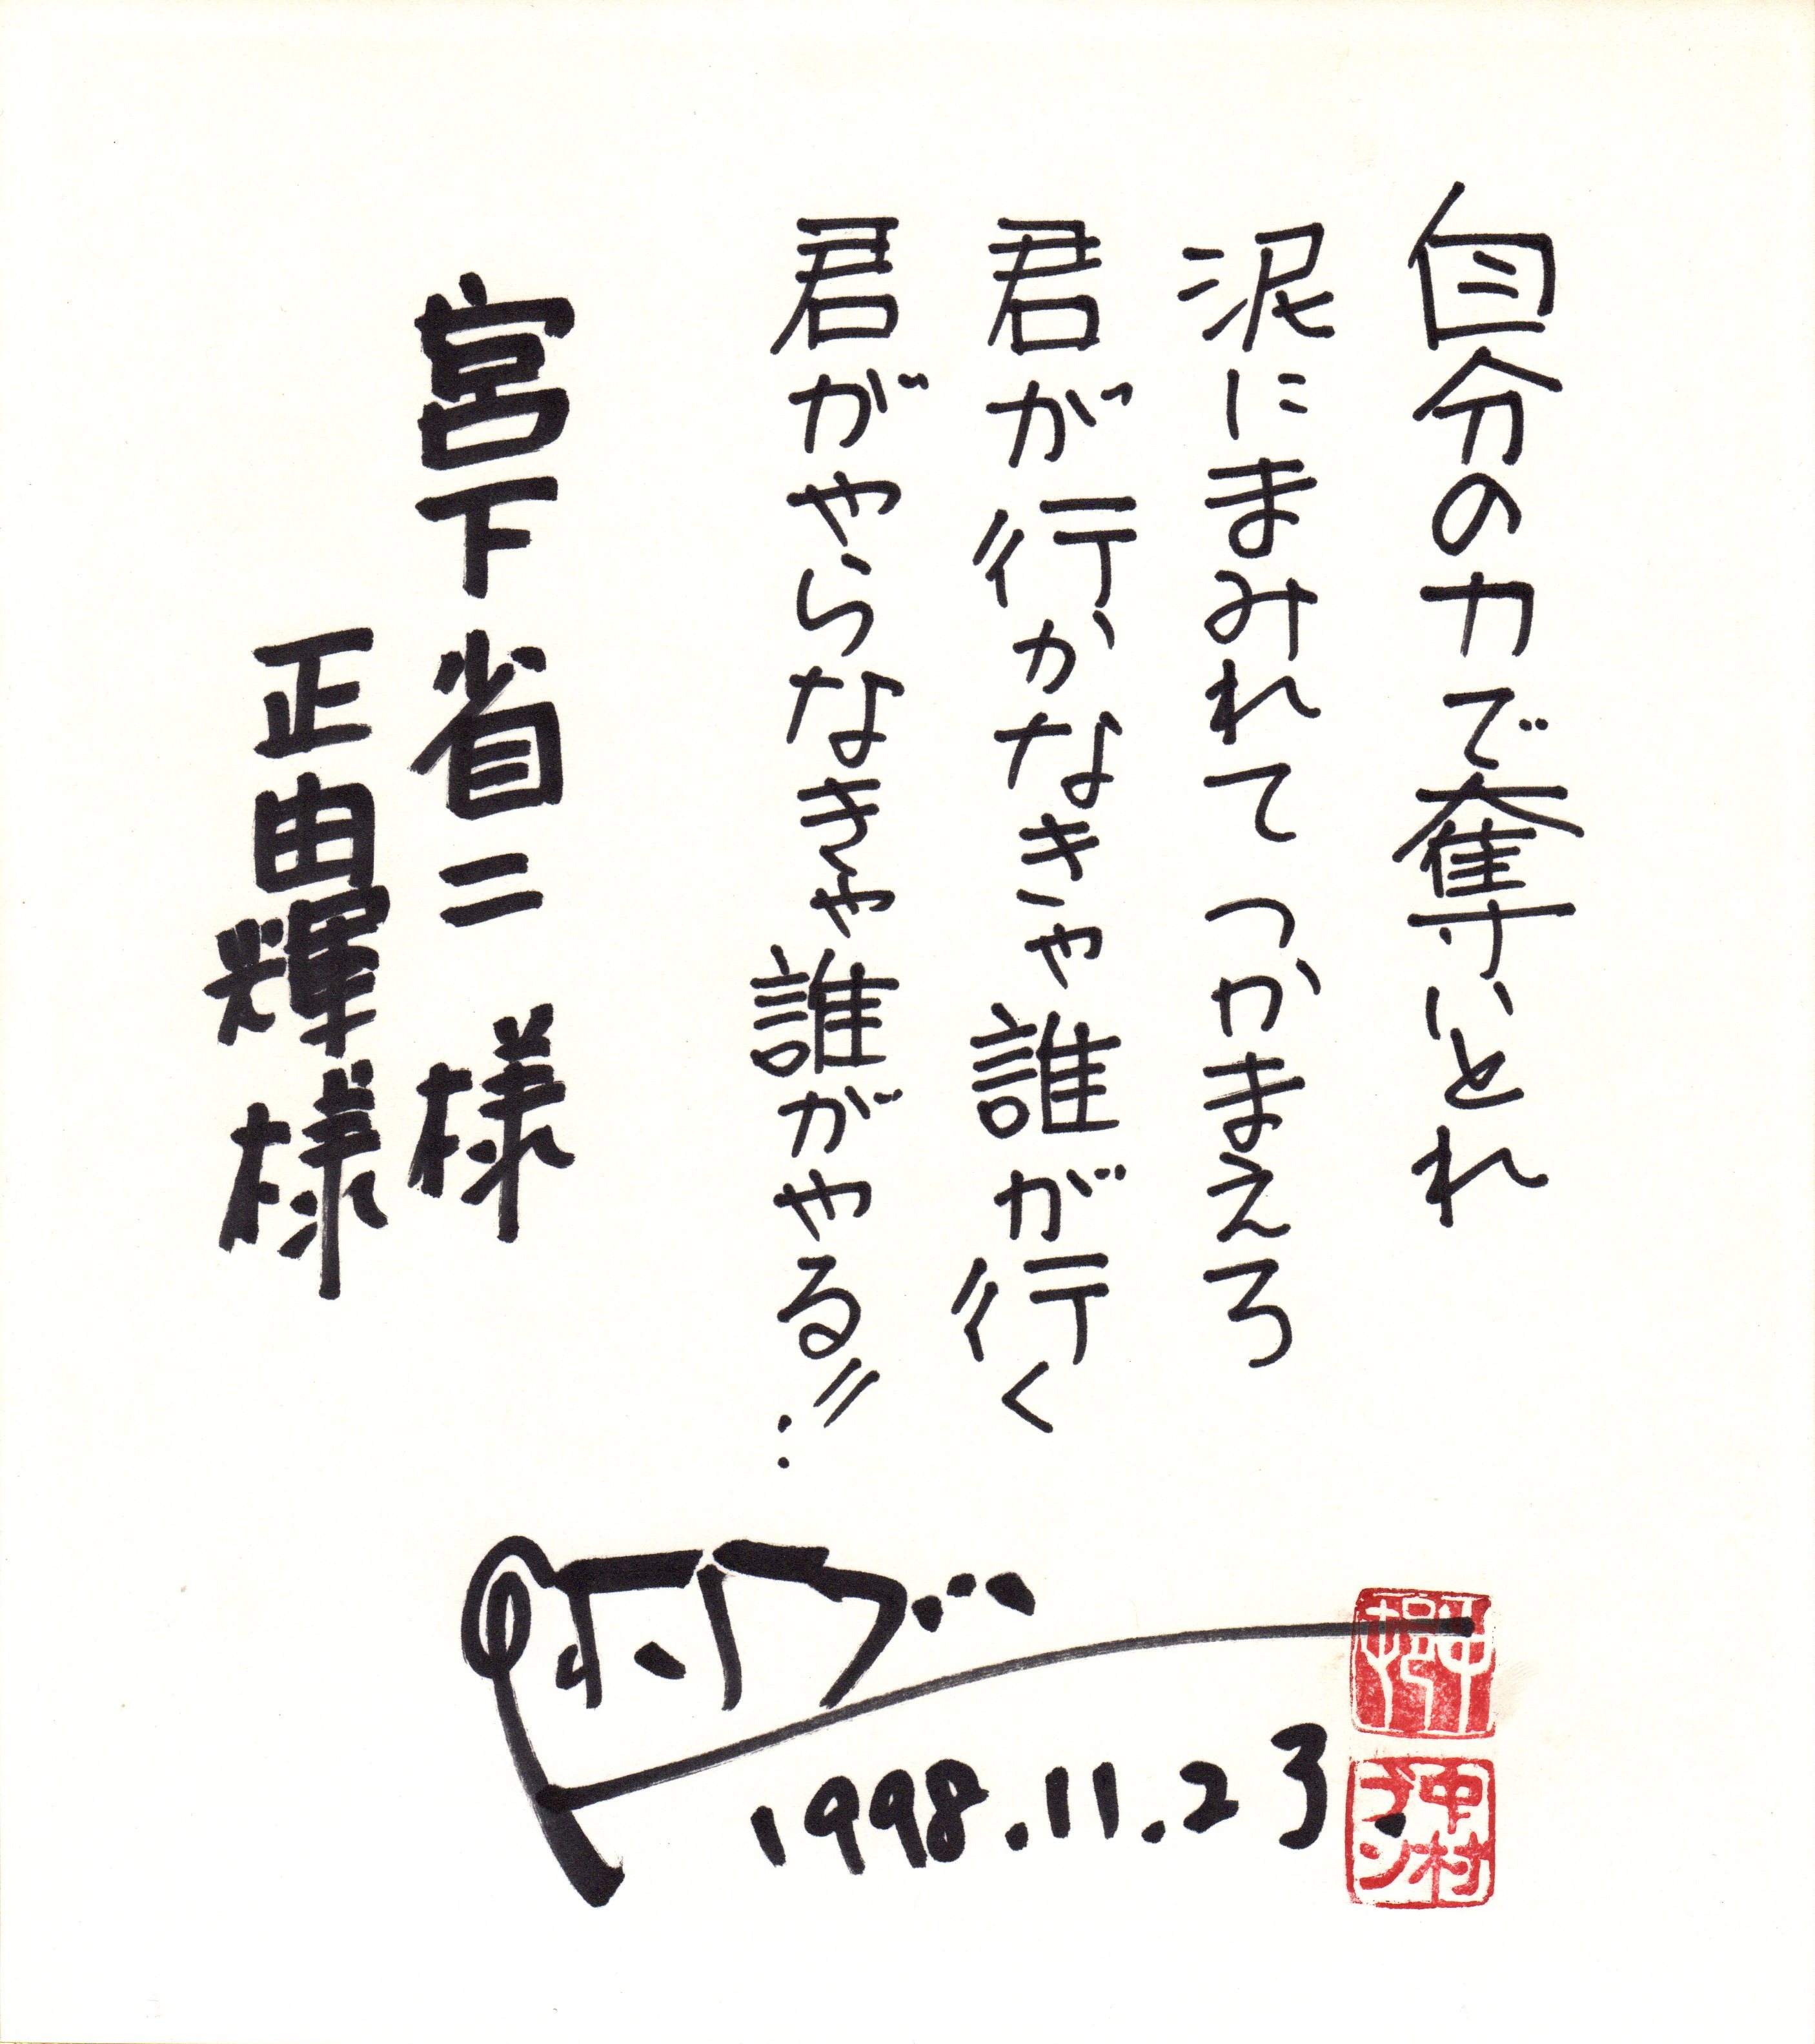 自分の力で奪いとれ
泥にまみれて つかまえろ
君が行かなきゃ誰が行く
君がやらなきゃ誰がやる!!
宮下 省二 様
正由輝様
1998.11.23